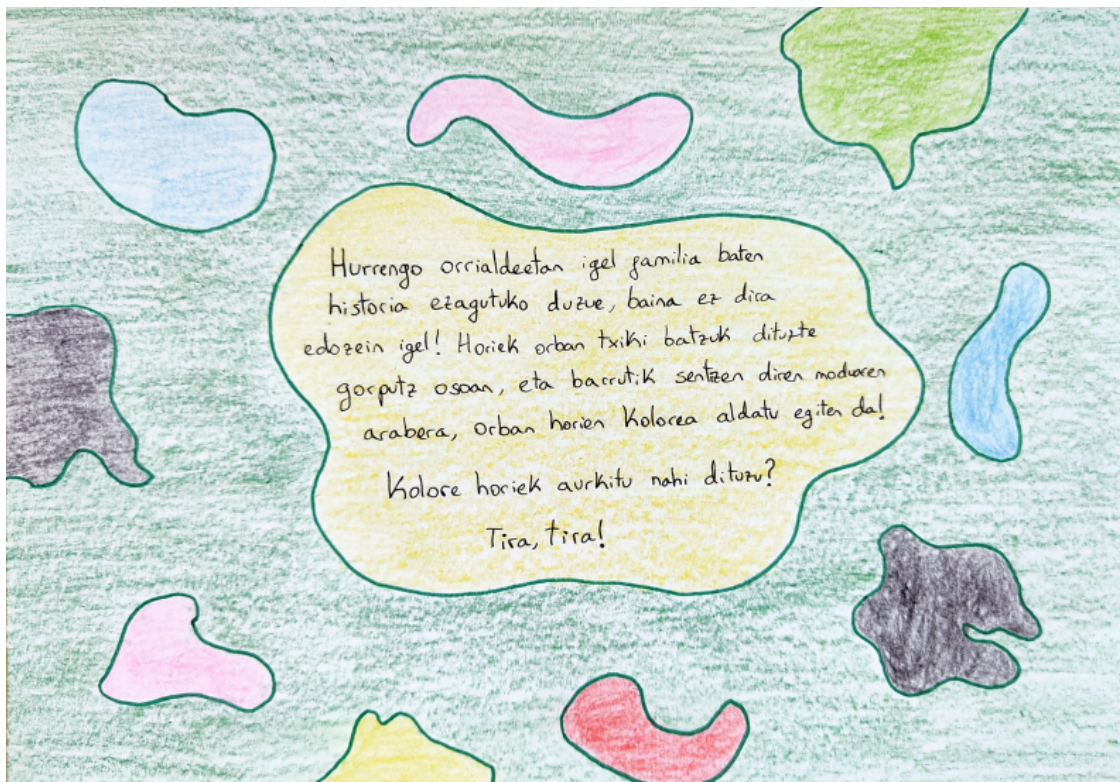 Hurrengo orrialdeetan igel familia baten
historia ezagutuko duzue, baina ez dira
edozein igel! Horiek orban txiki batzuk dituzte
gorputz osoan, eta barrutik sentzen diren moduaren
arabera, orban horien kolorea aldatu egiten da!
Kolore horiek aurkitu nahi dituzu?
Tira, tira!